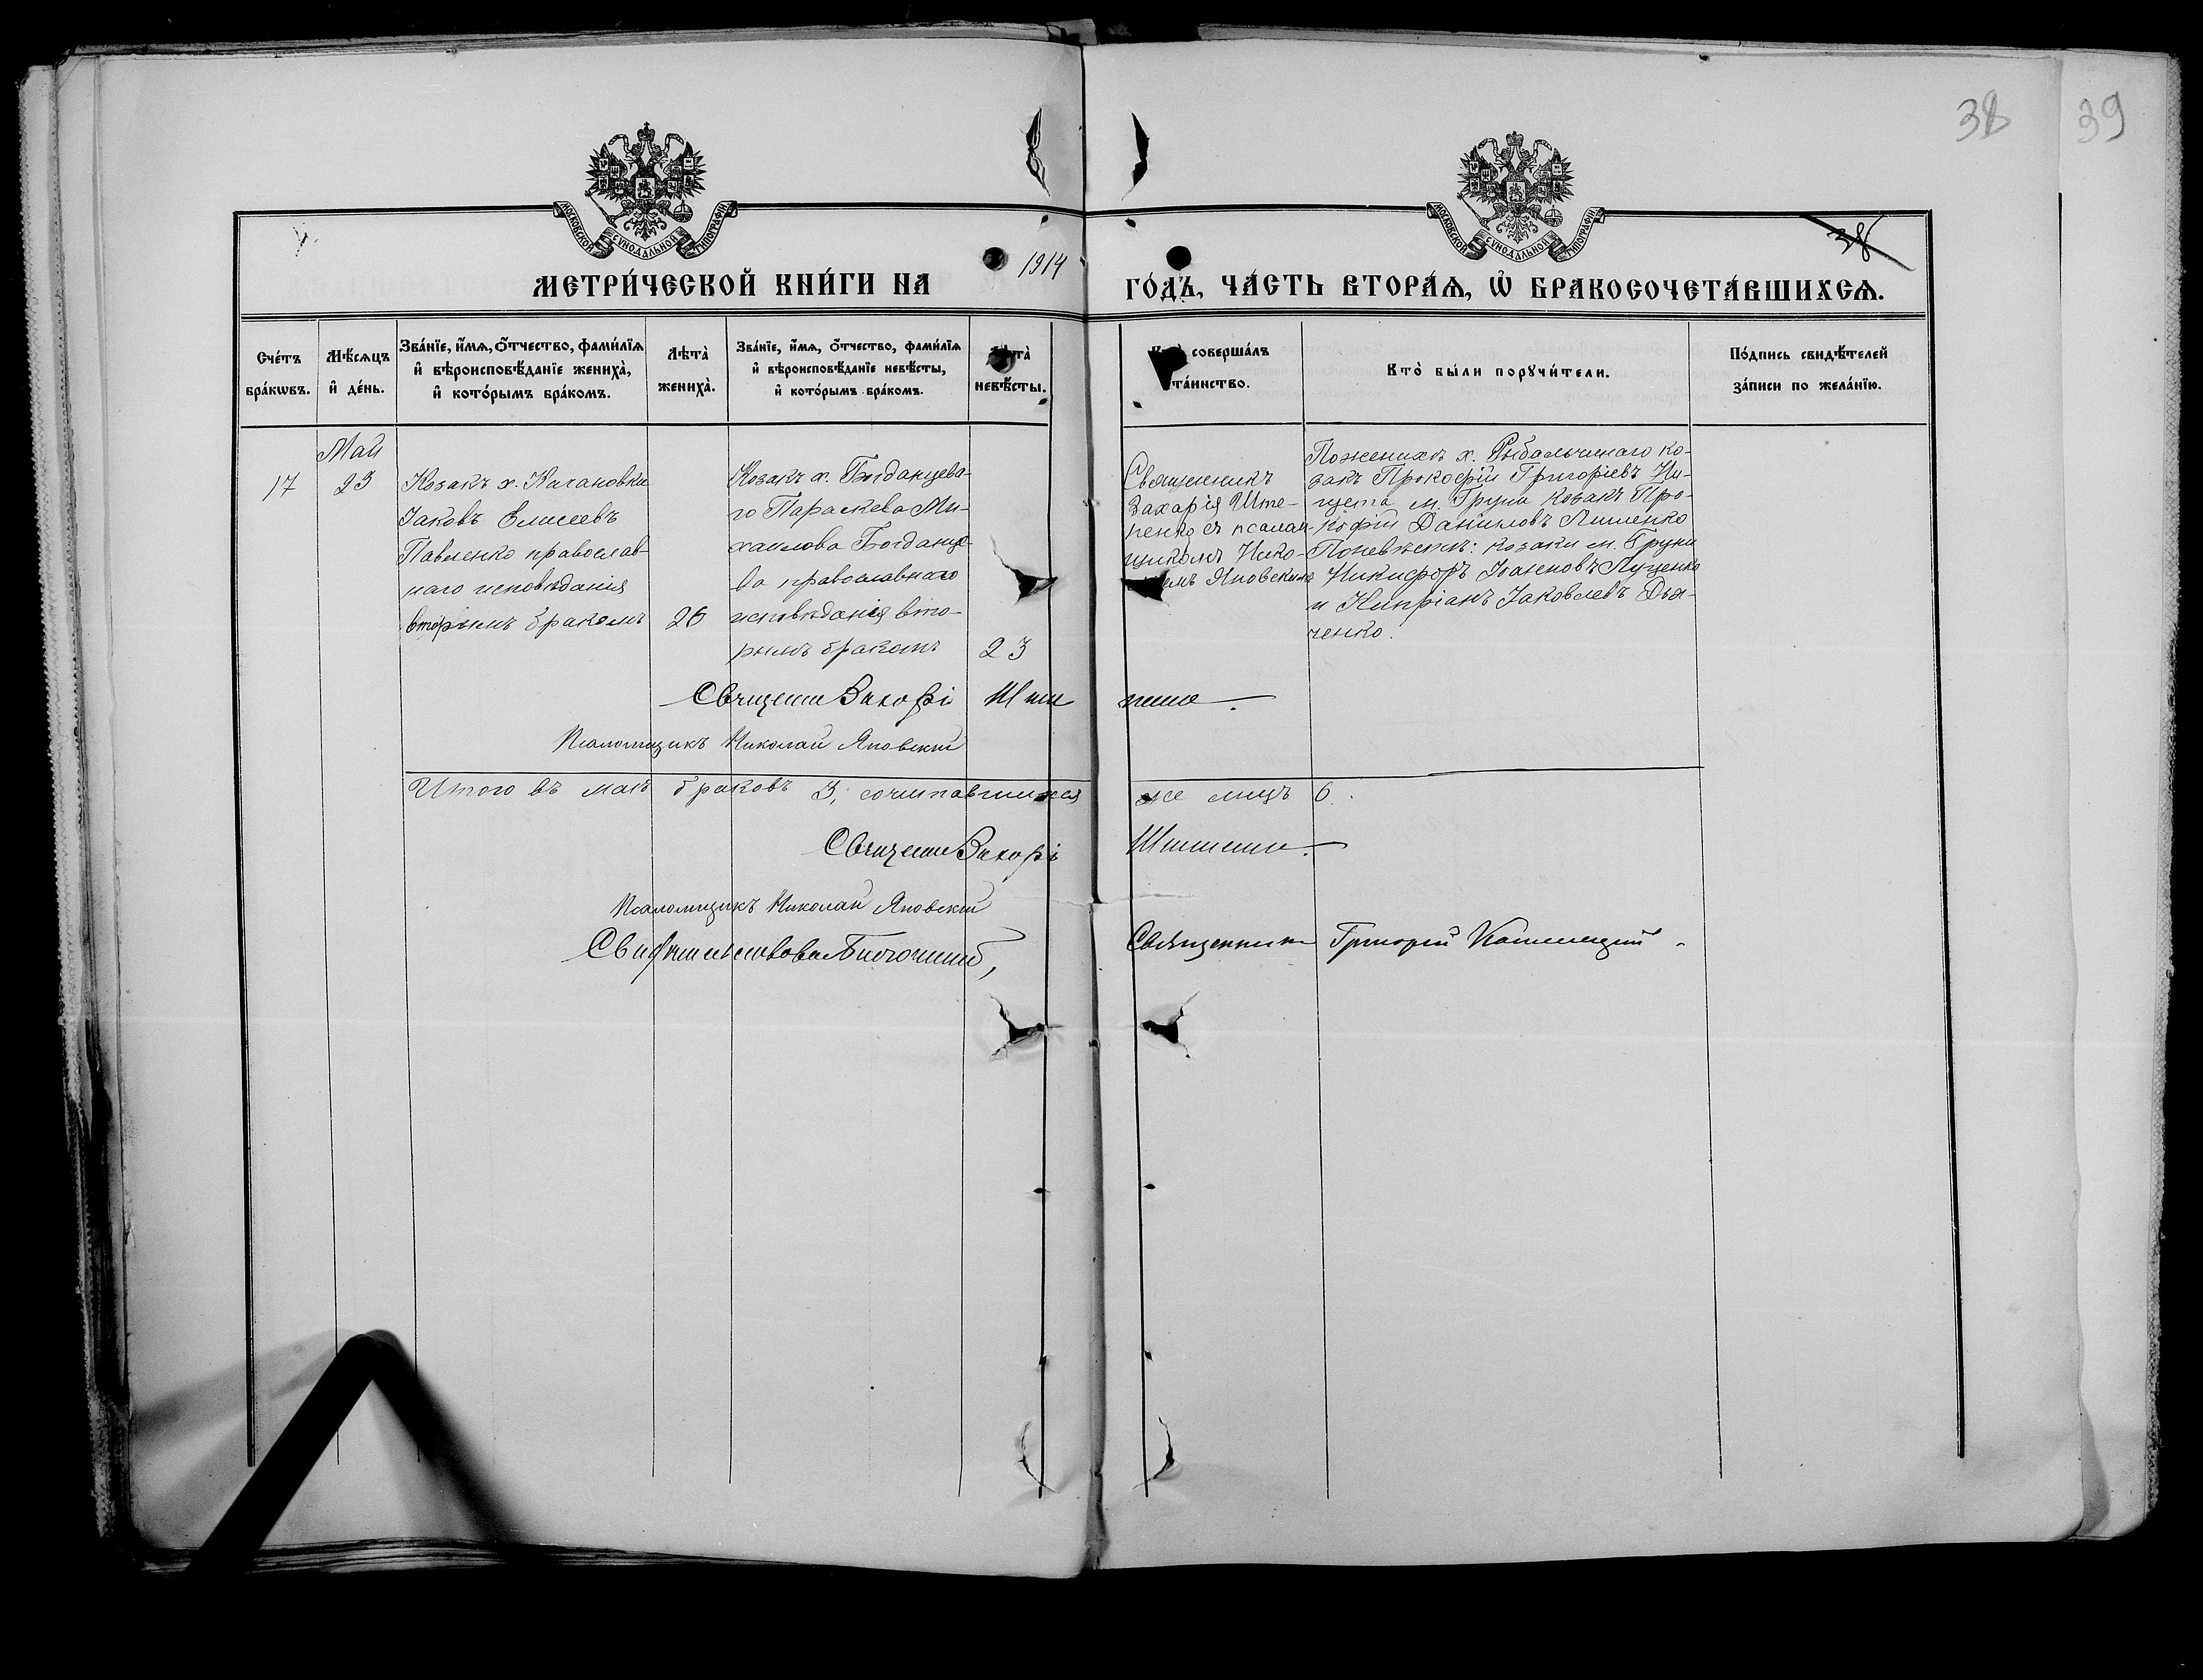 38
39
МОСКОВСКОЙ СѴНОДАЛЬНОЙ ТИПОГРАФІИ
МОСКОВСКОЙ СѴНОДАЛЬНОЙ ТИПОГРАФІИ
38
МЕТРИ́ЧЕСКОЙ КНИ́ГИ НА 1914 ГО́ДЪ, ЧА́СТЬ ВТОРА́Ѧ, Ѽ БРАКОСОЧЕТА́ВШИХСѦ.
Сче́тъ бра́кѡвъ.
Мѣ́сяцъ и҆ де́нь.
Зва́нїе, и҆́мѧ, ѻ҆́тчество, фами́лїѧ
и҆ вѣроисповѣ́данїе жениха̀,
и҆ кото́рымъ бра́комъ.
Лѣта̀ жениха̀.
Зва́нїе, и҆́мѧ, ѻ҆́тчество, фами́лїѧ
и҆ вѣроисповѣ́данїе невѣ́сты,
и҆ кото́рымъ бра́комъ.
невѣ́сты.
соверша́лъ
та́инство.
Кто̀ бы́ли порꙋчи́тели.
По́дпись свидѣ́телей
за́писи по жела́нїю.
17
Май
23
Козакъ х. Качановки
Іаковъ Елисеевъ
Павленко православ-
наго исповѣданія
вторымъ бракомъ
26
Козакъ х. Богданцева-
го Параскева Ми-
хаилова Богданце-
ва православнаго
исповѣданія вто-
рымъ бракомъ
23
Священникъ
Захарія Ште-
пенко съ псалом-
щикомъ Нико-
Яновскимъ
По женихѣ х. Рыбальчинаго ко-
закъ Прокофій Григоріевъ Ни-
щета м. Груни козакъ Про-
кофій Даниловъ Лишенко
По невѣстѣ: козаки м. Груни
Никифоръ Іоанновъ Луценко
и Кипріанъ Іаковлевъ Дья-
ченко.
Священ Захарія Штепенко.
Псаломщикъ Николай Яновскій
Итого въ маѣ браковъ 3, сочитавшихся же лицъ 6.
Священ Захарія Штепенко.
Псаломщикъ Николай Яновскій
Свидѣтельствовалъ Благочинный,
Священникъ Григорій